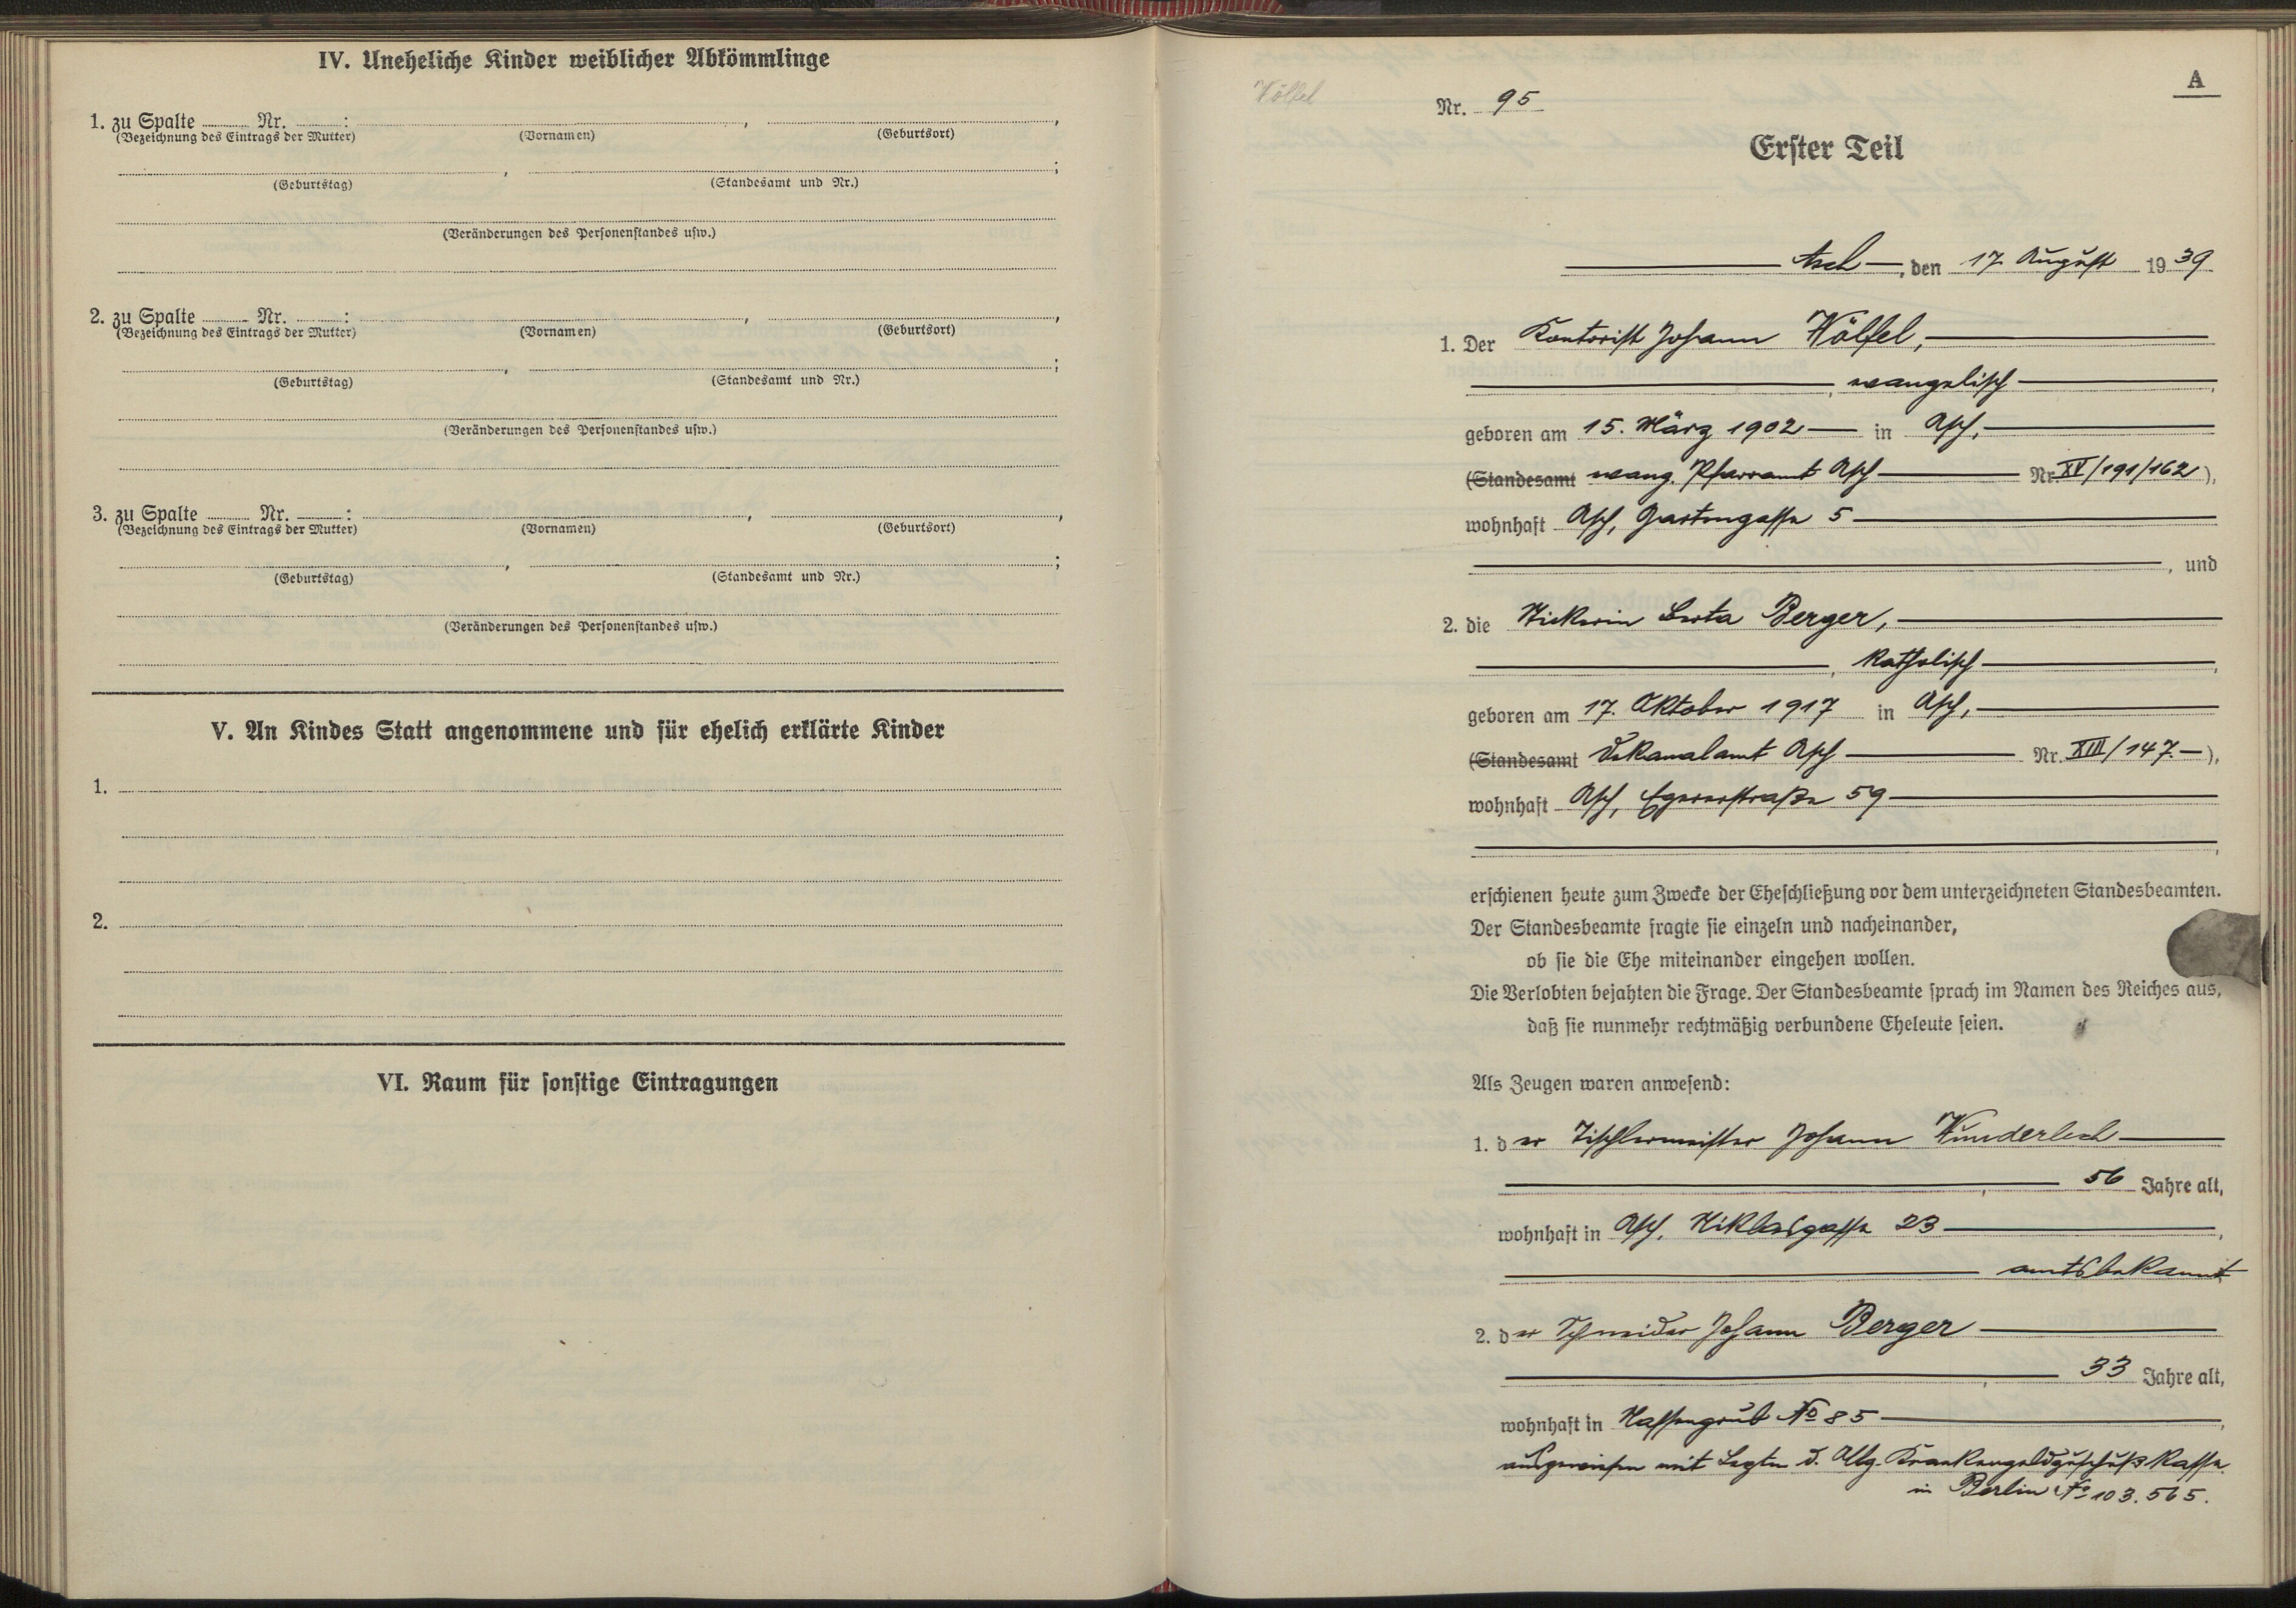 IV. Uneheliche Kinder weiblicher Abkömmlinge
1. zu Spalte ........ Nr. ........:
(Bezeichnung des Eintrags der Mutter) (Vornamen) (Geburtsort)
(Geburtstag) (Standesamt und Nr.)
(Veränderungen des Personenstandes usw.)
2. zu Spalte ........ Nr. ........:
(Bezeichnung des Eintrags der Mutter) (Vornamen) (Geburtsort)
(Geburtstag) (Standesamt und Nr.)
(Veränderungen des Personenstandes usw.)
3. zu Spalte ........ Nr. ........:
(Bezeichnung des Eintrags der Mutter) (Vornamen) (Geburtsort)
(Geburtstag) (Standesamt und Nr.)
(Veränderungen des Personenstandes usw.)
V. An Kindes Statt angenommene und für ehelich erklärte Kinder
1.
2.
VI. Raum für sonstige Eintragungen
A
Wölfel
Nr. 95
Erster Teil
Asch, den 17. August 1939
1. Der Kontorist Johann Wölfel,
, evangelisch
geboren am 15. März 1902 in Asch,
(Standesamt evang. Pfarramt Asch Nr. XV/191/162),
wohnhaft Asch, Gartengasse 5
, und
2. die Wickerin Berta Berger,
, katholisch
geboren am 17. Oktober 1917 in Asch,
(Standesamt Dekanalamt Asch Nr. XIII/147),
wohnhaft Asch, Egererstraße 59
erschienen heute zum Zwecke der Eheschließung vor dem unterzeichneten Standesbeamten.
Der Standesbeamte fragte sie einzeln und nacheinander,
ob sie die Ehe miteinander eingehen wollen.
Die Verlobten bejahten die Frage. Der Standesbeamte sprach im Namen des Reiches aus,
daß sie nunmehr rechtmäßig verbundene Eheleute seien.
Als Zeugen waren anwesend:
1. der Tischlermeister Johann Wunderlich
, 56 Jahre alt,
wohnhaft in Asch, Niklasgasse 23,
amtsbekannt
2. der Schneider Johann Berger
, 33 Jahre alt,
wohnhaft in Nassengrub No 85,
ausgewiesen mit d. Allg. Krankengeldzuschuß Kasse
in Berlin No 103.565.